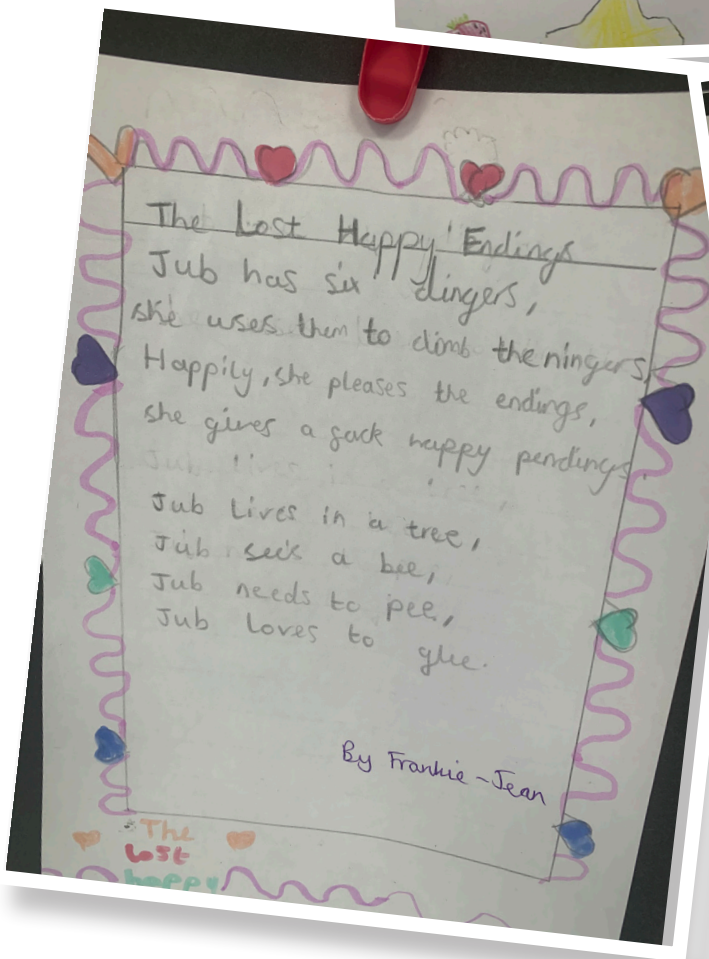 The Lost Happy Endings
Jub has six dingers,
she uses them to climb the ningers,
Happily, she pleases the endings,
she gives a sack happy pendings.
Jub lives in
Jub Lives in a tree,
Jub sees a bee,
Jub needs to pee,
Jub Loves to glue.
By Frankie-Jean
The
Lost
happy